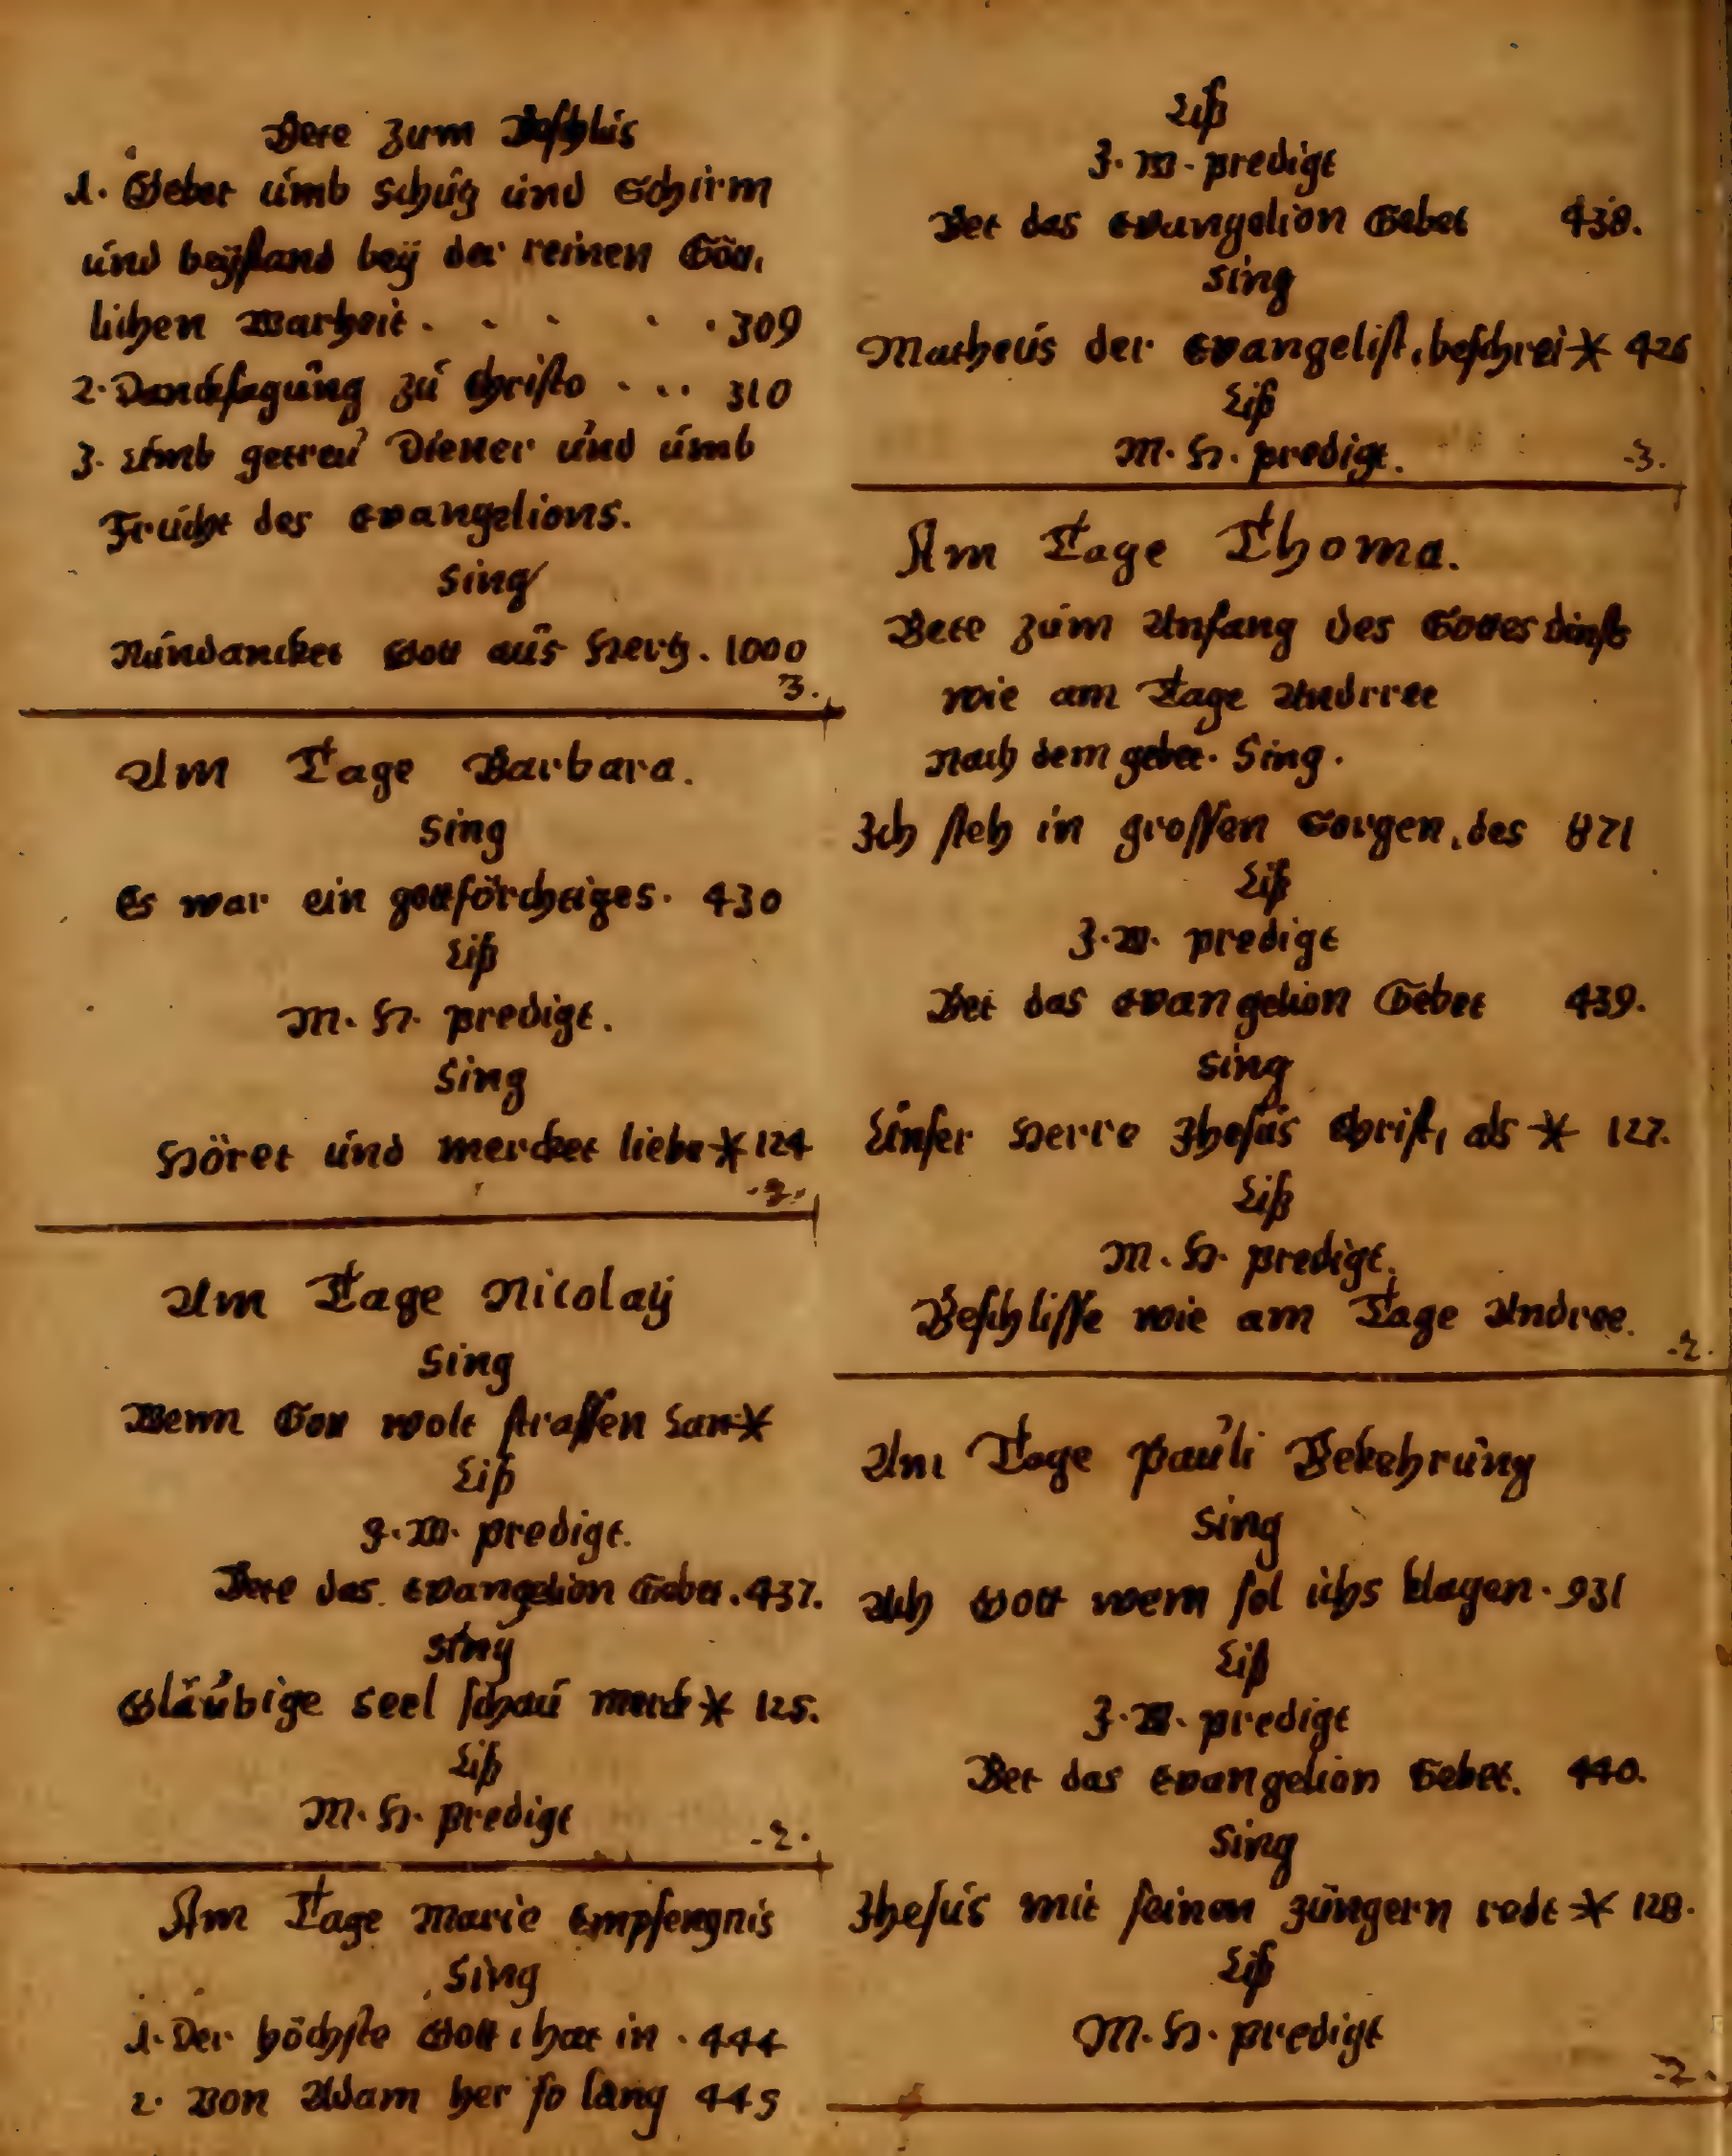 Bete zum Beschlus
1. Gebet umb schutz und Schirm
und beÿstand beÿ der reinen Göt,
lichen Warheit . . . . . 309
2. Dancksagung zu Christo . . . 310
3. Umb getreu Diener und umb
Frucht des Evangelions.
Sing
Nundancket Gott aus Hertz. 1000
3.
Am Tage Barbara.
Sing
Es war ein gottförchtiges. 430
Liß
M. H. predigt.
Sing
Höret und mercket liebe * 124
.2.
Am Tage Nicolaÿ
Sing
Wenn Gott wolt straffen Lan *
Liß
J. W. predigt.
Bete das Evangelion Gebet. 437.
Sing
Gläubige Seel schau merck * 125.
Liß
M. H. predigt
.2.
Am Tage Marie Empfengnis
Sing
1. Der höchste Gott, hat in . 444
2. Von Adam her so lang 445
Liß
J. W. predigt
Bet das Evangelion Gebet 438.
Sing
Matheus der Evangelist, beschrei * 426
Liß
M. H. predigt.
.3.
Am Tage Thoma.
Bete zum Anfang des Gottesdinsts
wie am Tage Andree
Nach dem gebet. Sing.
Ich steh in grossen Sorgen, des 821
Liß
J. W. predigt
Bet das Evangelion Gebet 439.
Sing
Unser Herre Jhesus Christ, als * 127.
Liß
M. H. predigt.
Beschlisse wie am Tage Andree.
.2.
Am Tage Pauli Bekehrung
Sing
Ach Gott wem sol ichs klagen . 931
Liß
J. W. predigt
Bet das Evangelion Gebet. 440.
Sing
Jhesus mit seinen Jüngern redt * 128.
Liß
M. H. predigt
.2.